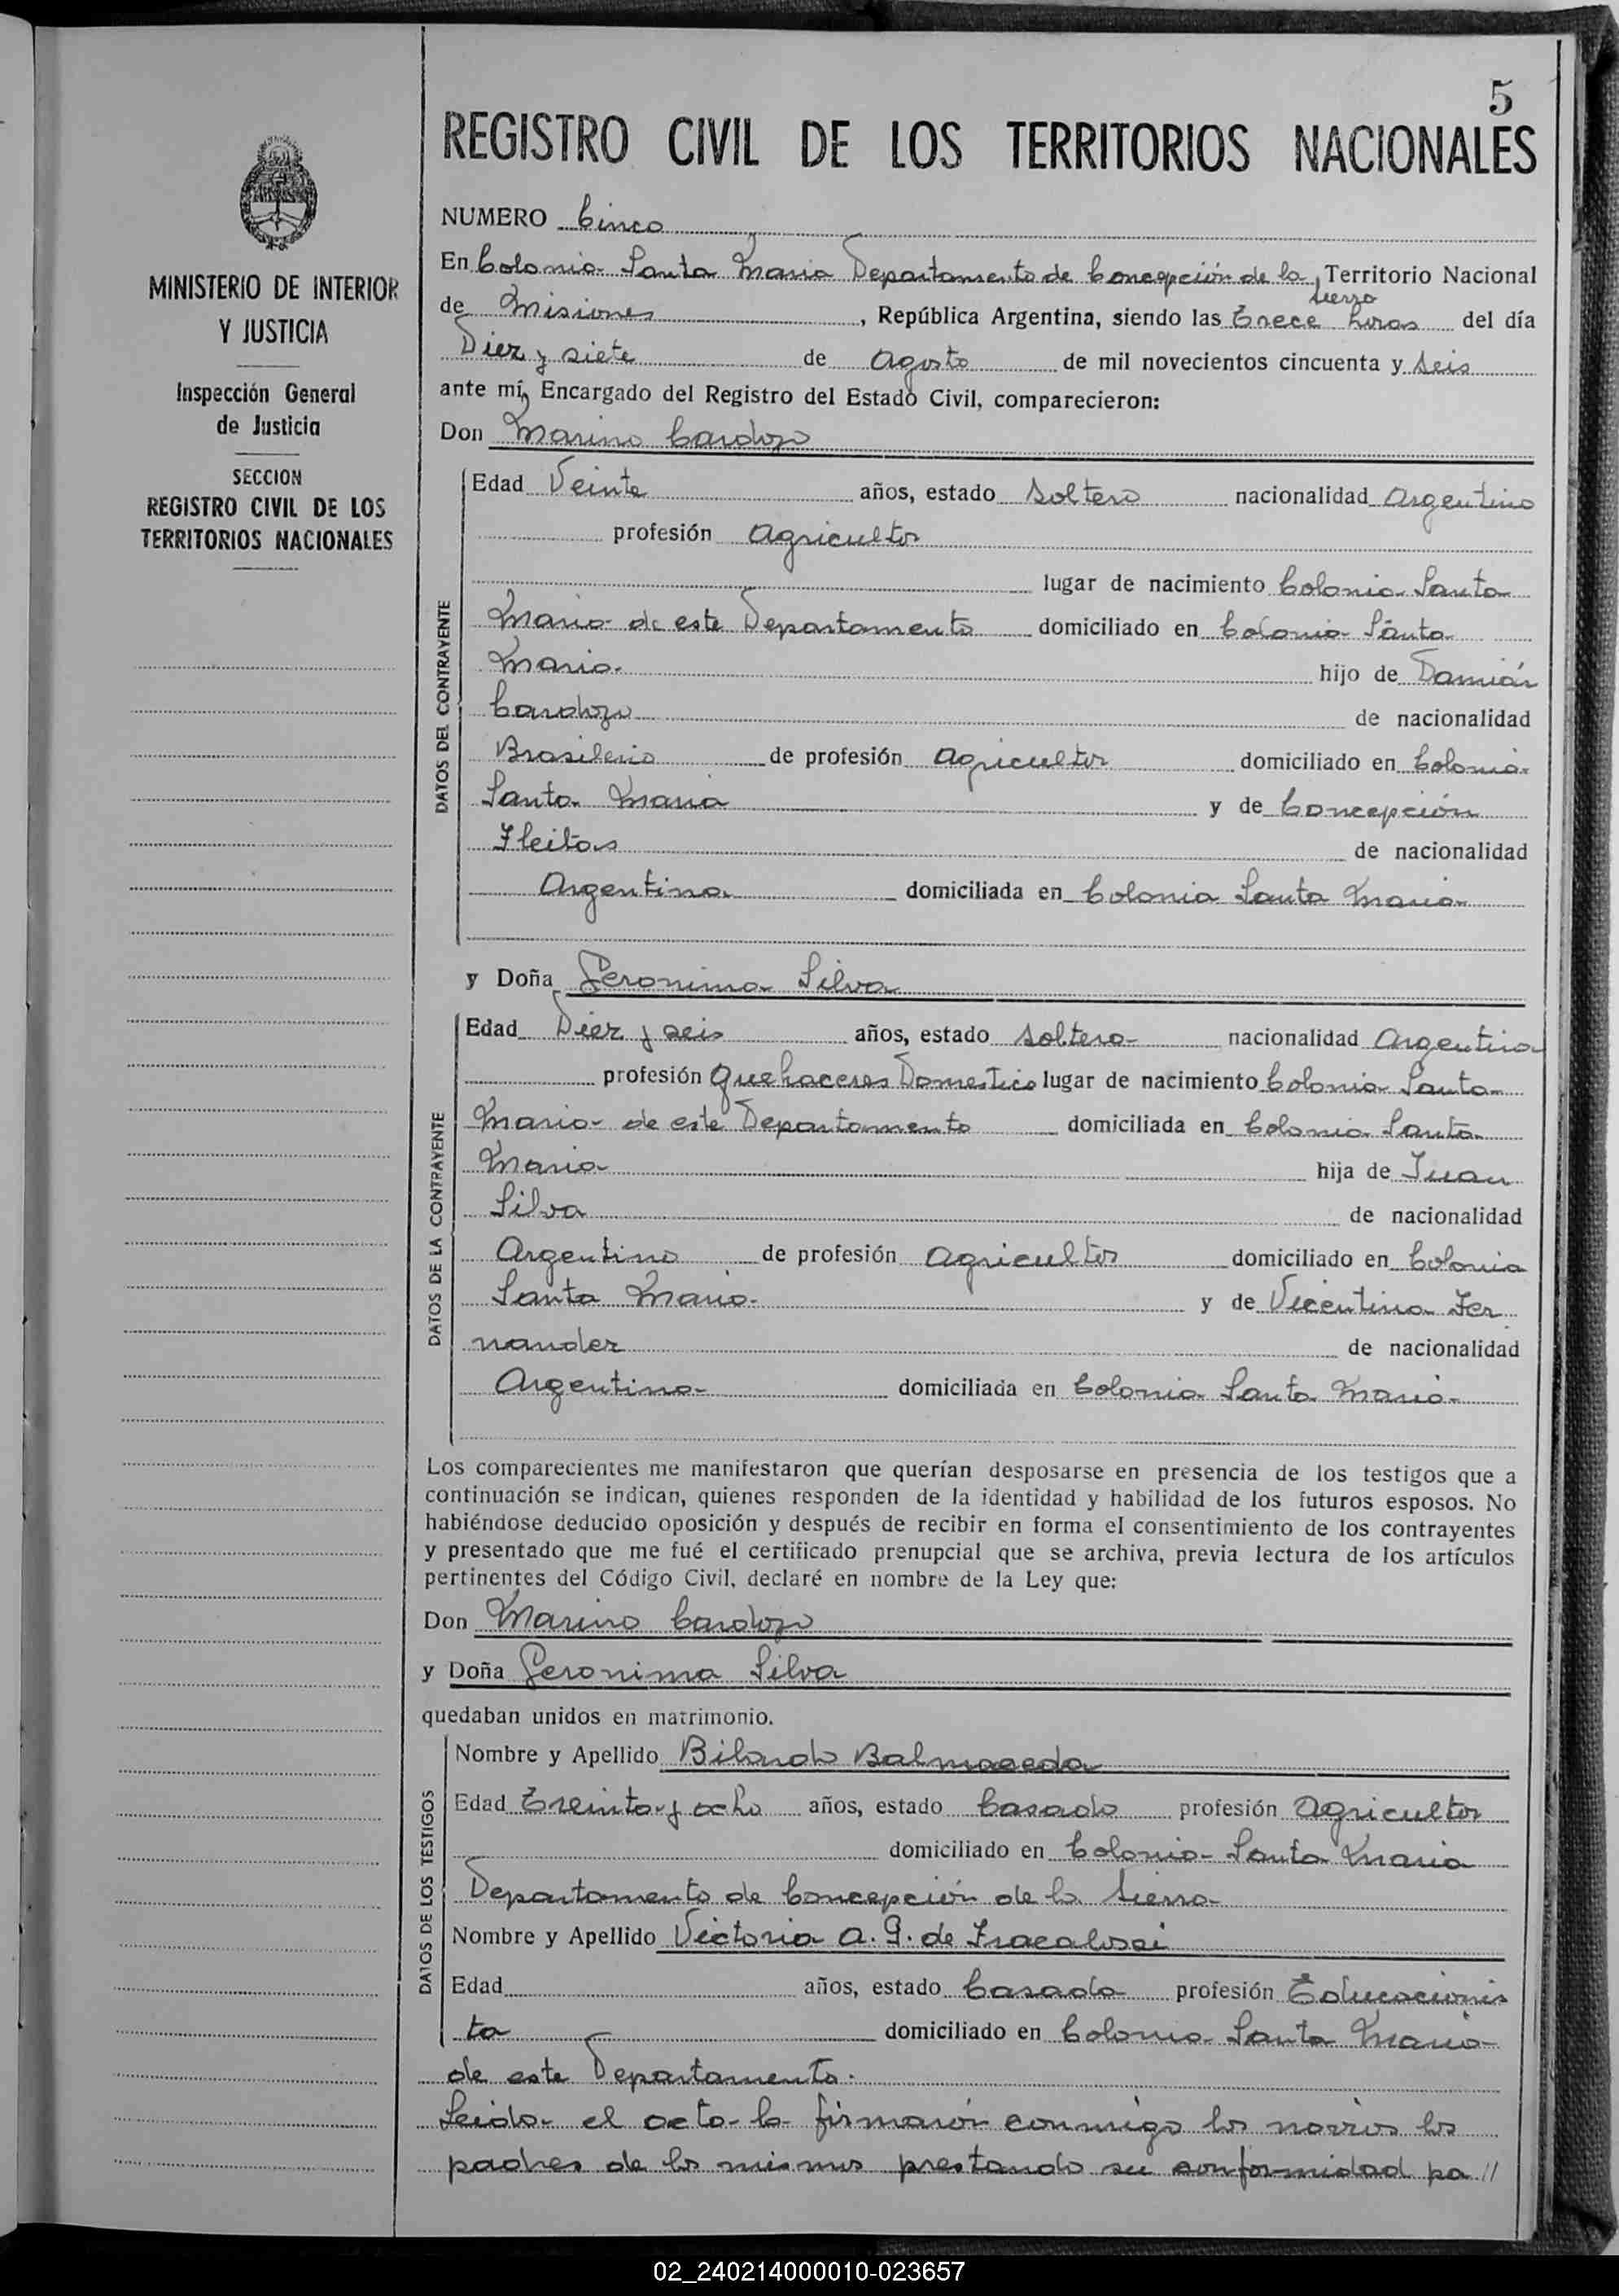 5
REGISTRO CIVIL DE LOS TERRITORIOS NACIONALES
MINISTERIO DE INTERIOR
Y JUSTICIA
Inspección General
de Justicia
SECCION
REGISTRO CIVIL DE LOS
TERRITORIOS NACIONALES
NUMERO Cinco
En Colonia Santa Maria Departamento de Concepción de la Sierra, Territorio Nacional
de Misiones, República Argentina, siendo las Trece horas del día
Diez y siete de Agosto de mil novecientos cincuenta y seis
ante mí, Encargado del Registro del Estado Civil, comparecieron:
Don Marino Cardozo
DATOS DEL CONTRAYENTE
Edad Veinte años, estado soltero nacionalidad Argentino
profesión Agricultor
lugar de nacimiento Colonia Santa
Maria de este Departamento domiciliado en Colonia Santa
Maria hijo de Damián
Cardozo de nacionalidad
Brasilerio de profesión Agricultor domiciliado en Colonia
Santa Maria y de Concepción
Fleitas de nacionalidad
Argentina domiciliada en Colonia Santa Maria
y Doña Geronima Silva
DATOS DE LA CONTRAYENTE
Edad Diez y seis años, estado soltera nacionalidad Argentina
profesión Quehaceres Domestico lugar de nacimiento Colonia Santa
Maria de este Departamento domiciliada en Colonia Santa
Maria hija de Juan
Silva de nacionalidad
Argentino de profesión Agricultor domiciliado en Colonia
Santa Maria y de Vicentina Fer
nandez de nacionalidad
Argentina domiciliada en Colonia Santa Maria
Los comparecientes me manifestaron que querían desposarse en presencia de los testigos que a
continuación se indican, quienes responden de la identidad y habilidad de los futuros esposos. No
habiéndose deducido oposición y después de recibir en forma el consentimiento de los contrayentes
y presentado que me fué el certificado prenupcial que se archiva, previa lectura de los artículos
pertinentes del Código Civil, declaré en nombre de la Ley que:
Don Marino Cardozo
y Doña Geronima Silva
quedaban unidos en matrimonio.
DATOS DE LOS TESTIGOS
Nombre y Apellido Balmaceda
Edad Treinta y ocho años, estado Casado profesión Agricultor
domiciliado en Colonia Santa Maria
Departamento de Concepción de la Sierra
Nombre y Apellido Victoria A. G. de Fracalossi
Edad años, estado Casada profesión Educacionis
ta domiciliado en Colonia Santa Maria
de este Departamento.
Leida el acta la firmarón conmigo los novios los
padres de los mismos prestando su conformidad pa //
02_240214000010-023657